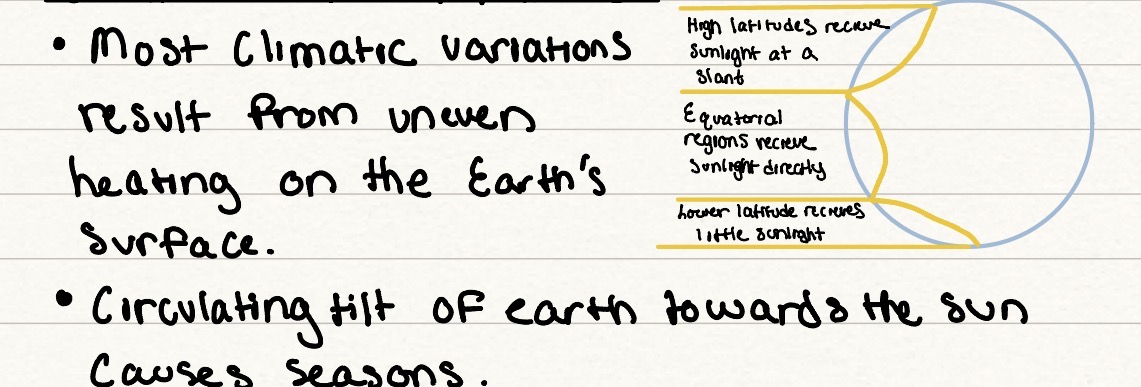 • Most Climatic variations
result from uneven
heating on the Earth's
Surface.
High latitudes recieve
Sunlight at a
Slant
Equatorial
regions recieve
Sunlight directly
Lower latitude recieves
little sunlight
• Circulating tilt of earth towards the sun
Causes seasons.